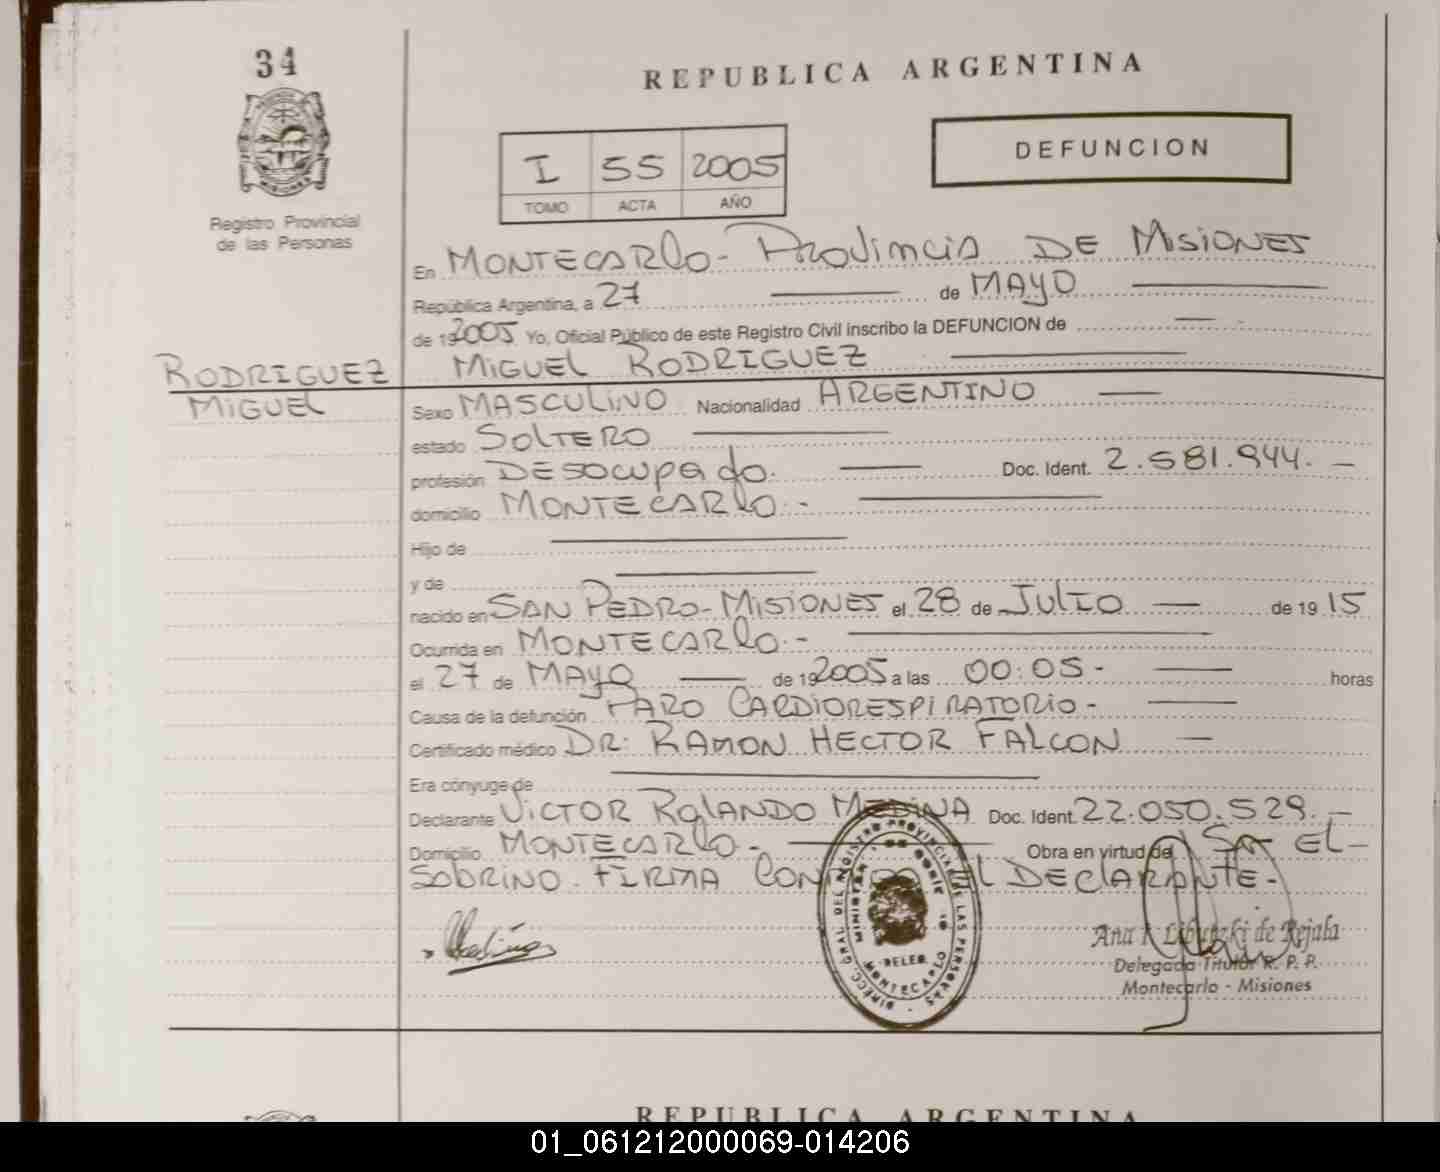 34
REPUBLICA ARGENTINA
DEFUNCION
I 55 2005
TOMO ACTA AÑO
Registro Provincial
de las Personas
En MONTECARLO - PROVINCIA DE MISIONES
República Argentina, a 27 de MAYO
de 192005 Yo, Oficial Público de este Registro Civil inscribo la DEFUNCION de
RODRIGUEZ
MIGUEL
MIGUEL RODRIGUEZ
Sexo MASCULINO Nacionalidad ARGENTINO
estado SOLTERO
profesión DESOCUPADO. Doc. Ident. 2.581.944. -
domicilio MONTECARLO. -
Hijo de
y de
nacido en SAN PEDRO - MISIONES el 28 de JULIO de 19 15
Ocurrida en MONTECARLO. -
el 27 de MAYO de 192005 a las 00:05 - horas
Causa de la defunción PARO CARDIORESPIRATORIO -
Certificado médico DR: RAMON HECTOR FALCON
Era cónyuge de
Declarante VICTOR ROLANDO MEDINA Doc. Ident. 22.050.529. -
Domicilio MONTECARLO - Obra en virtud de SER EL
SOBRINO. FIRMA EL DECLARANTE -
DIRECC. GRAL. DEL REGISTRO PROVINCIAL DE LAS PERSONAS
MINISTERIO DE GOBIERNO
DELEG.
MONTECARLO
Ana de Rejala
Delegada Titular R. P. P.
Montecarlo - Misiones
REPUBLICA ARGENTINA
01_061212000069-014206